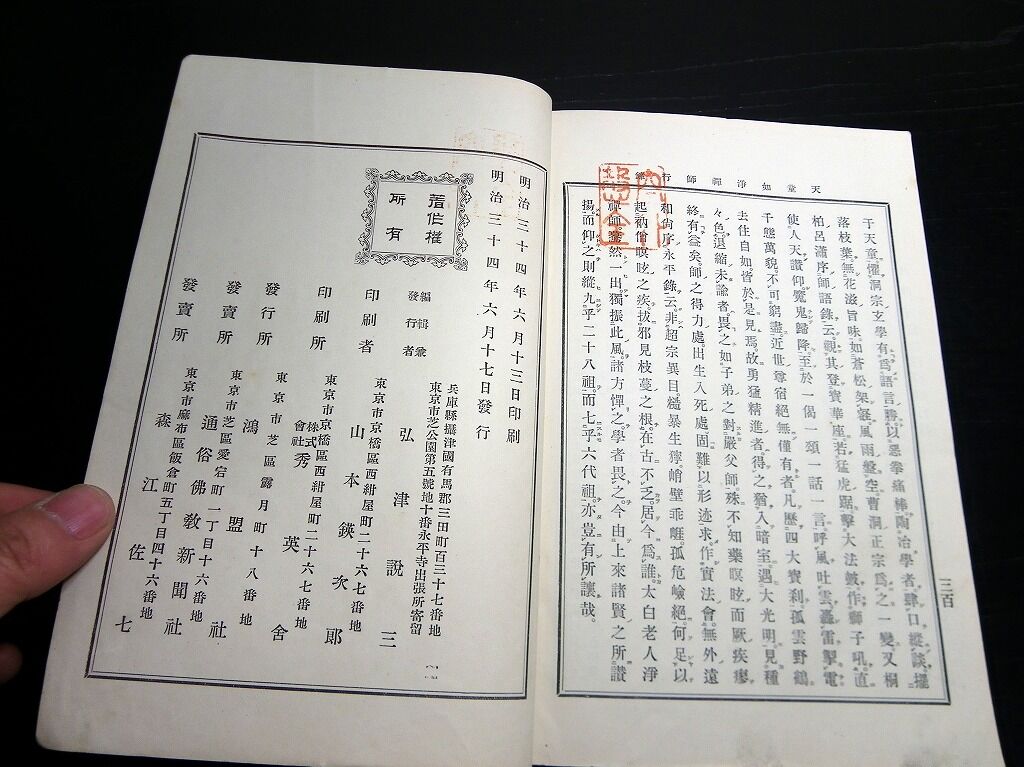 三百
天童如淨禪師行錄
于天童。懼洞宗玄學有爲語言勝。以惡拳痛棒。陶冶學者。肆口縱談。擺
落枝葉。無花滋旨味。如蒼松架壑。風雨盤空。曹洞正宗爲之一變。又桐
柏呂瀟序師語錄云。觀其登寶華座。若猛虎踞。擊大法皷。作獅子吼。直
使人天讃仰。魔鬼歸降。至於一偈一頌一話一言。呼風吐雲。轟雷掣電。
千態萬貌。不可窮盡。近世尊宿絕無僅有者。凡歷四大寶刹。孤雲野鶴
去住自如。皆於是見焉。故勇猛精進者。得之猶入暗室遇大光明。見種
々色。退縮未諭者。畏之如子弟之對嚴父師。殊不知藥瞑眩而厥疾瘳。
終有益矣。師之得力處。出生入死處。固難以形迹求。作實法會。無外遠
和尚序永平錄云。非超宗異目。縒暴生獰。峭壁乖崕。孤危嶮絕。何足以
起衲僧瞑眩之疾。拔邪見枝蔓之根。在古不乏。居今爲誰。太白老人淨
禪師驀然一出。獨振此風。諸方憚之。學者畏之。今由上來諸賢之所讃
揚而仰之則縱九乎二十八祖。而七乎六代祖。亦豈有所讓哉。
明治三十四年六月十三日印刷
明治三十四年六月十七日發行
著作權
所有
兵庫縣攝津國有馬郡三田町百三十七番地
東京市芝公園第五號地十番永平寺出張所寄留
編輯兼
發行者 弘津説三
東京市京橋區西紺屋町二十六七番地
印刷者 山本鍈次郎
東京市京橋區西紺屋町二十六七番地
印刷所 株式會社秀英舍
東京市芝區露月町十八番地
發行所 鴻盟社
東京市芝區愛宕町一丁目十六番地
發賣所 通俗佛敎新聞社
東京市麻布區飯倉町五丁目四十六番地
發賣所 森江佐七